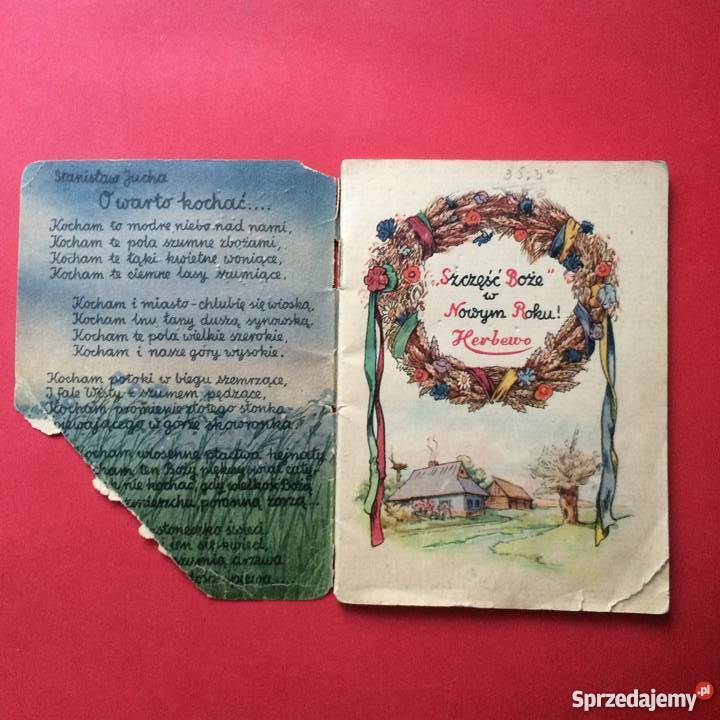 Stanisław Jucha
O warto kochać....
Kocham to modre niebo nad nami,
Kocham te pola szumne zbożami,
Kocham te łąki kwietne woniące,
Kocham te ciemne lasy szumiące.
Kocham i miasto - chlubię się wioską,
Kocham lnu łany duszą synowską.
Kocham te pola wielkie szerokie,
Kocham i nasze góry wysokie.
Kocham potoki w biegu szemrzące,
I fale Wisły z szumem pędzące,
Kocham promienie złotego słonka
w górze skowronka.
wiosenne ptactwa hejnały
ten Boży piękny świat cały
nie kochać, gdy wielkość Bożą
poranną zorzą...
słoneczko świeci
się kwieci
szumią drzewa
śpiewa....
35,30
„Szczęść Boże"
w
Nowym Roku!
Herbewo
Sprzedajemy.pl